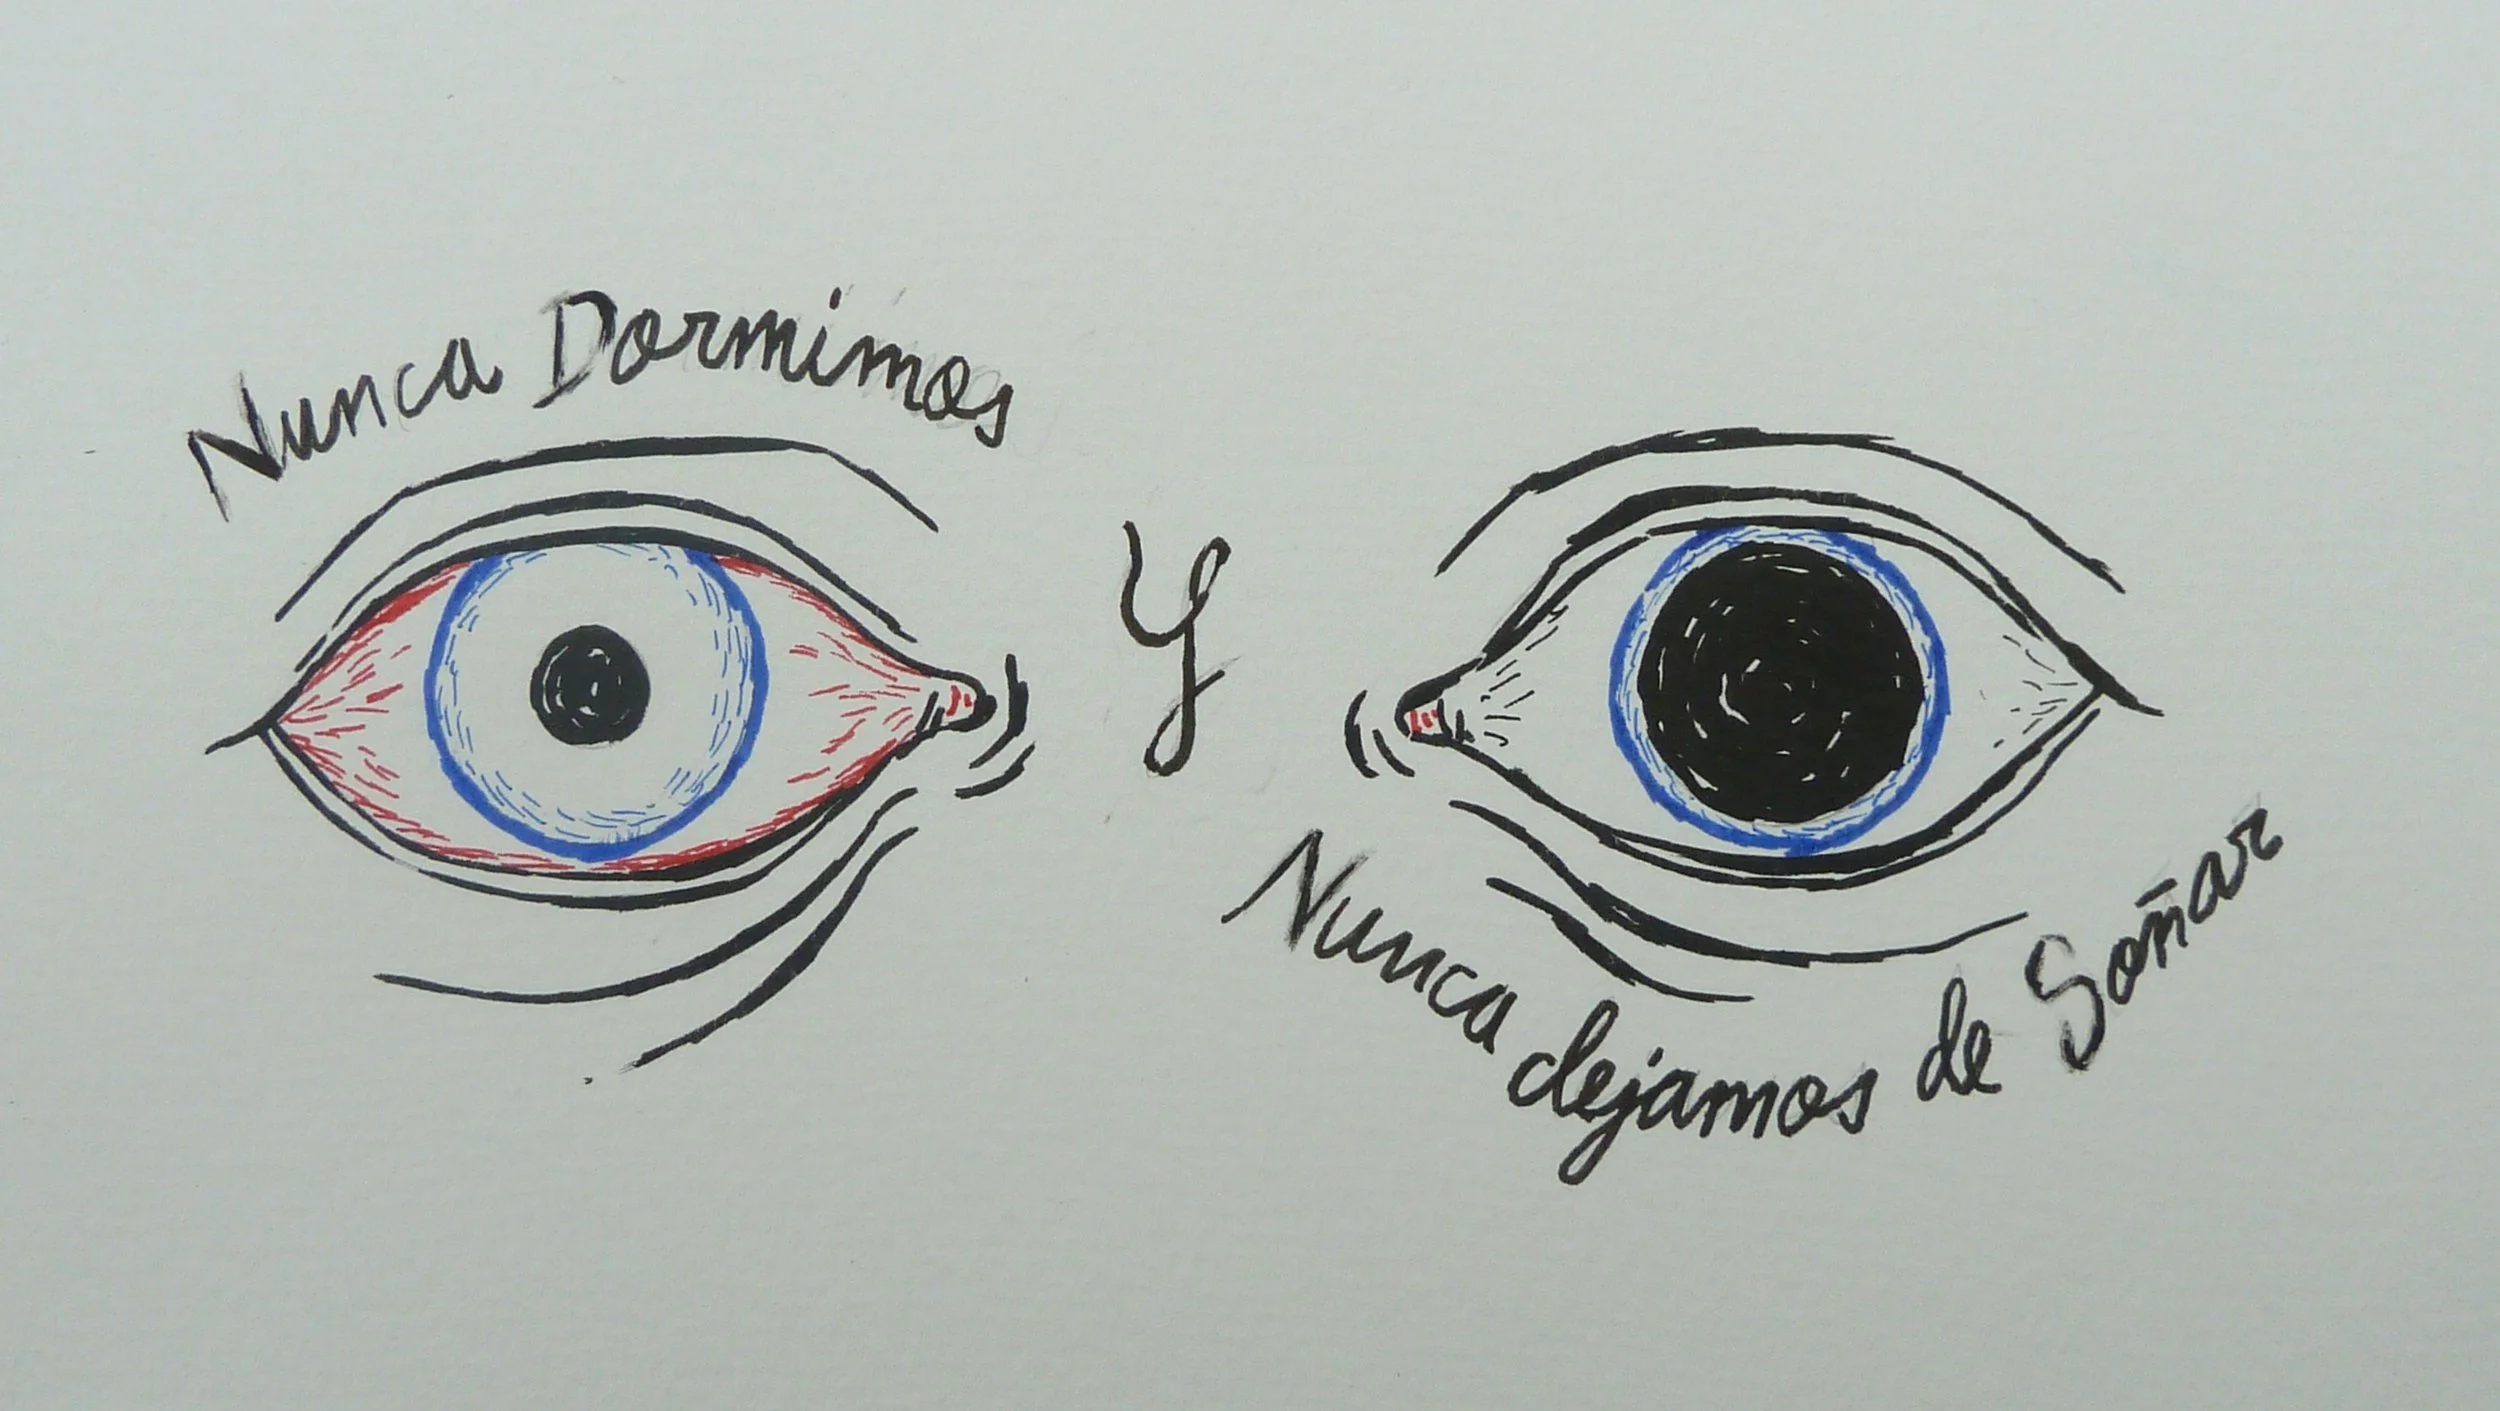 Nunca Dormimos
y
Nunca dejamos de Soñar